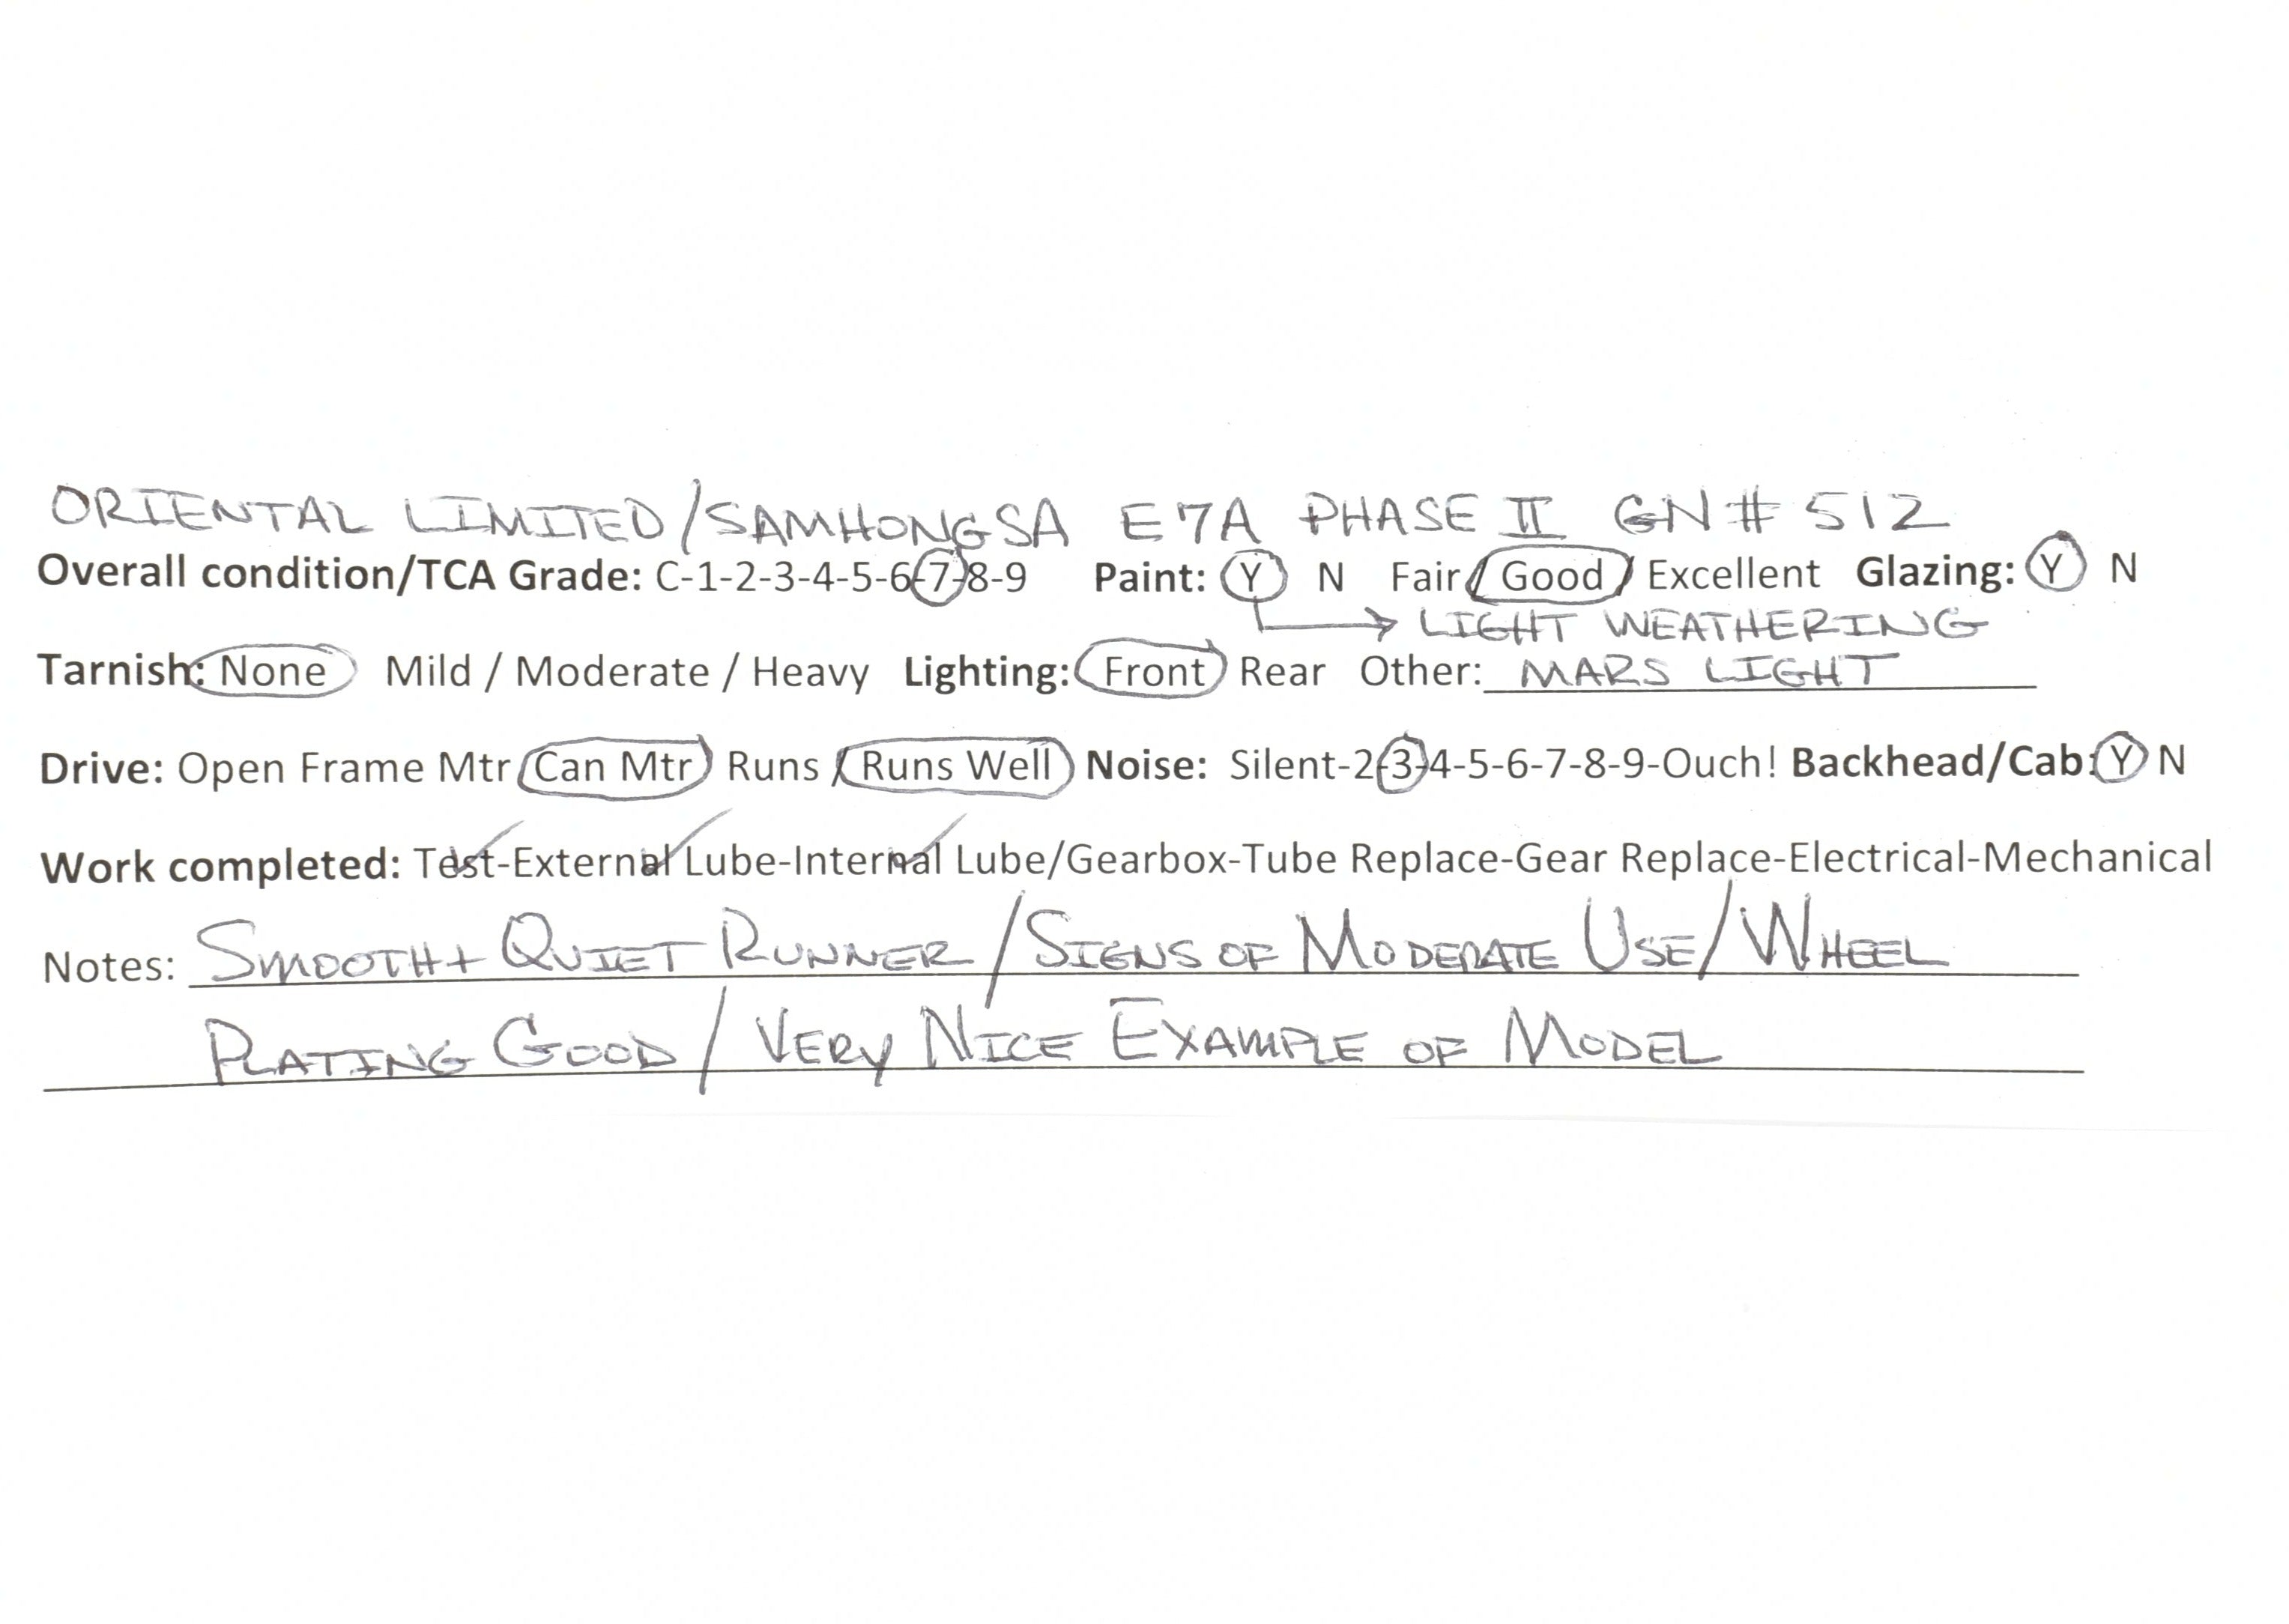 ORIENTAL LIMITED/SAMHONGSA E7A PHASE II GN# 512
Overall condition/TCA Grade: C-1-2-3-4-5-6-7-8-9 Paint: Y N Fair/ Good / Excellent Glazing: Y N
LIGHT WEATHERING
Tarnish: None Mild / Moderate / Heavy Lighting: Front Rear Other: MARS LIGHT
Drive: Open Frame Mtr Can Mtr Runs / Runs Well Noise: Silent-2-3-4-5-6-7-8-9-Ouch! Backhead/Cab: Y N
Work completed: Test-External Lube-Internal Lube/Gearbox-Tube Replace-Gear Replace-Electrical-Mechanical
Notes: SMOOTH + QUIET RUNNER / SIGNS OF MODERATE USE / WHEEL
PLATING GOOD / VERY NICE EXAMPLE OF MODEL